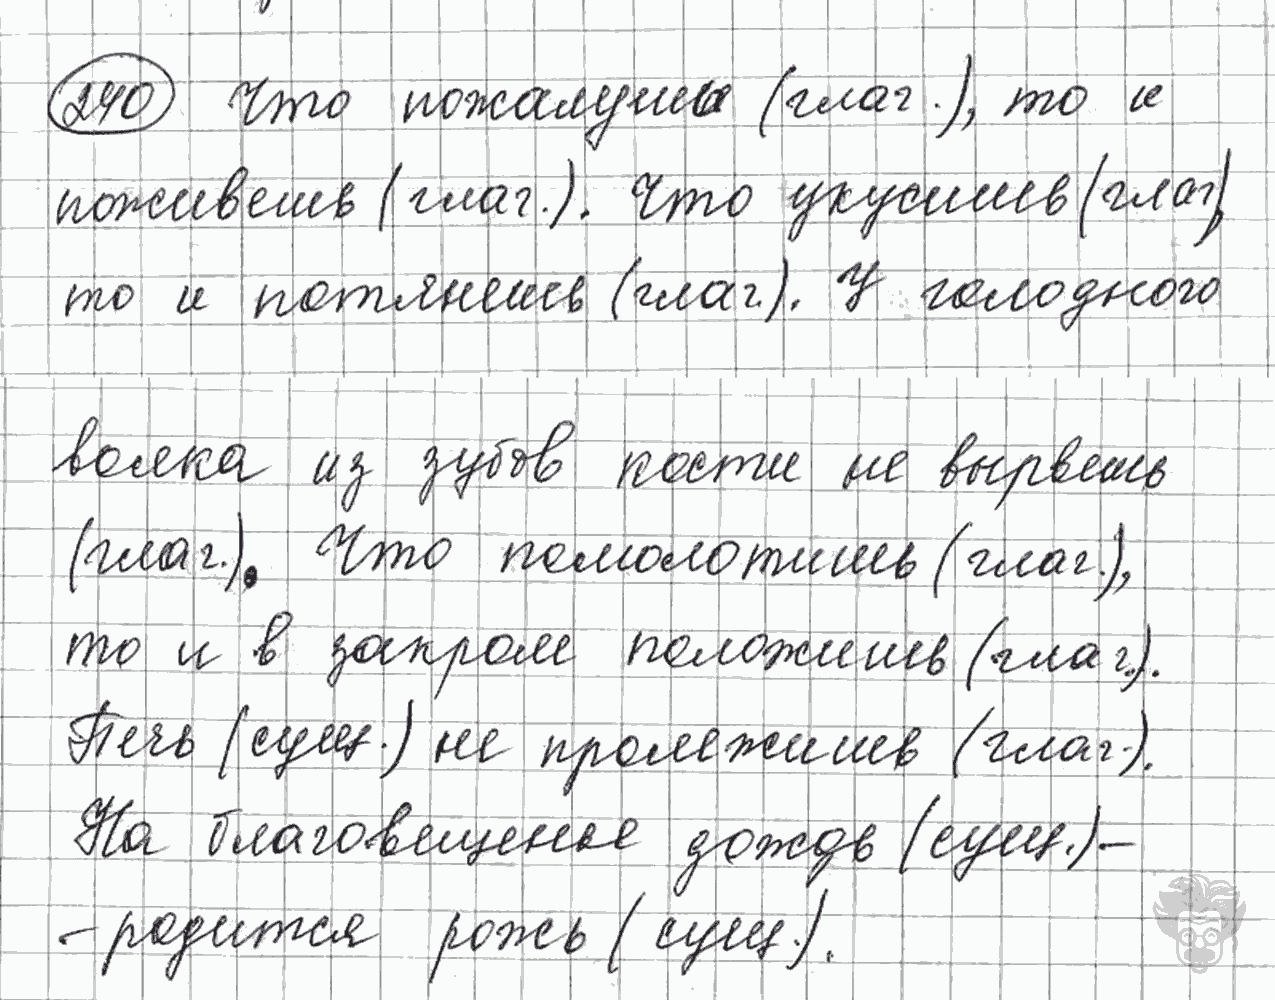 240 Что пожалуеш (глаг.), то и
поживешь (глаг.). Что укусишь (глаг),
то и потянешь (глаг.). У голодного
волка из зубов кости не вырвешь
(глаг.). Что помолотишь (глаг.),
то и в закром положишь (глаг.).
Печь (сущ.) не пролежишь (глаг.).
На благовещенье дождь (сущ.) –
– родится рожь (сущ.).